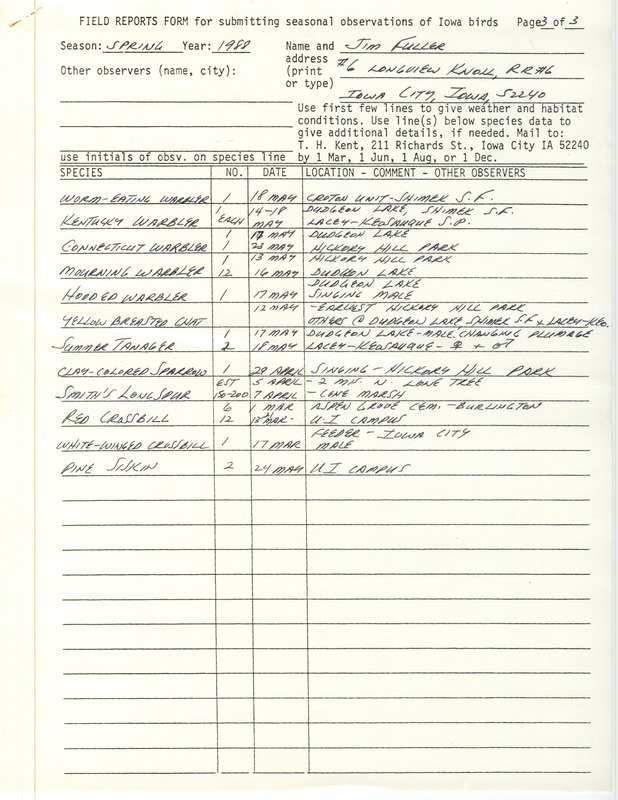 FIELD REPORTS FORM for submitting seasonal observations of Iowa birds Page 3 of 3
Season: SPRING Year: 1988 Name and JIM FULLER
address #6 LONGVIEW KNOLL, R.R.#6
Other observers (name, city): (print
or type) IOWA CITY, IOWA, 52240
Use first few lines to give weather and habitat
conditions. Use line(s) below species data to
give additional details, if needed. Mail to:
T. H. Kent, 211 Richards St., Iowa City IA 52240
use initials of obsv. on species line by 1 Mar, 1 Jun, 1 Aug, or 1 Dec.
SPECIES NO. DATE LOCATION - COMMENT - OTHER OBSERVERS
WORM-EATING WARBLER 1 18 MAY CROTON UNIT-SHIMEK S.F.
1 14-18 DUDGEON LAKE, SHIMEK S.F.
KENTUCKY WARBLER EACH MAY LACEY-KEOSAUQUE S.P.
1 17 MAY DUDGEON LAKE
CONNECTICUT WARBLER 1 23 MAY HICKORY HILL PARK
1 13 MAY HICKORY HILL PARK
MOURNING WARBLER 12 16 MAY DUDGEON LAKE
DUDGEON LAKE
HOODED WARBLER 1 17 MAY SINGING MALE
12 MAY -EARLIEST HICKORY HILL PARK
YELLOW BREASTED CHAT OTHERS @ DUDGEON LAKE, SHIMEK S.F. & LACEY-KEO.
1 17 MAY DUDGEON LAKE-MALE CHANGING PLUMAGE
SUMMER TANAGER 2 18 MAY LACEY-KEOSAUQUE - ♀ + ♂
CLAY-COLORED SPARROW 1 29 APRIL SINGING - HICKORY HILL PARK
EST 5 APRIL - 2 MI. N. LONE TREE
SMITH'S LONGSPUR 150-200 7 APRIL - CONE MARSH
6 1 MAR ASPEN GROVE CEM. - BURLINGTON
RED CROSSBILL 12 MAR- U-I CAMPUS
FEEDER - IOWA CITY
WHITE-WINGED CROSSBILL 1 17 MAR MALE
PINE SISKIN 2 24 MAY U I CAMPUS